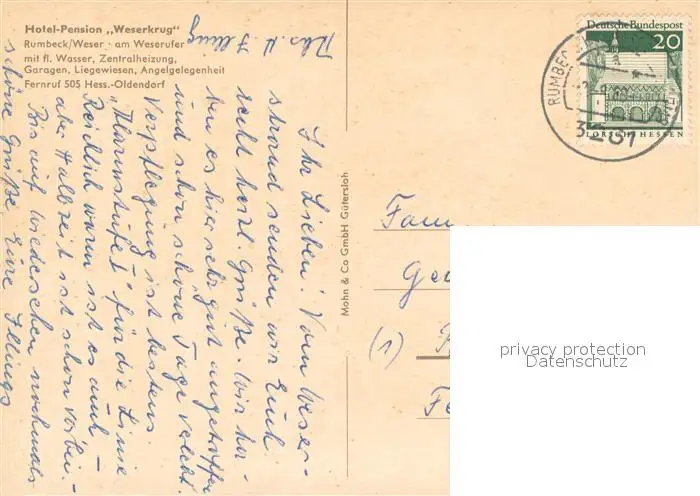 Hotel-Pension „Weserkrug"
Rumbeck/Weser · am Weserufer
mit fl. Wasser, Zentralheizung,
Garagen, Liegewiesen, Angelgelegenheit
Fernruf 505 Hess.-Oldendorf
Ihr Lieben! Vom Weser-
strand senden wir Euch
recht herzl. Grüße. Wir ha-
ben es hier sehr gut angetroffen
und schon schöne Tage verlebt.
Verpflegung ist bestens
für die Linie
Reichlich warm ist es auch –
aber Halbzeit ist schon vorbei.–
Bis auf Wiedersehen nochmals
schöne Grüße, Eure Illings
Mohn & Co GmbH Gütersloh
Deutsche Bundespost
20
LORSCH/HESSEN
RUMBEC
3251
Fam
Ge
(1)
privacy protection
Datenschutz